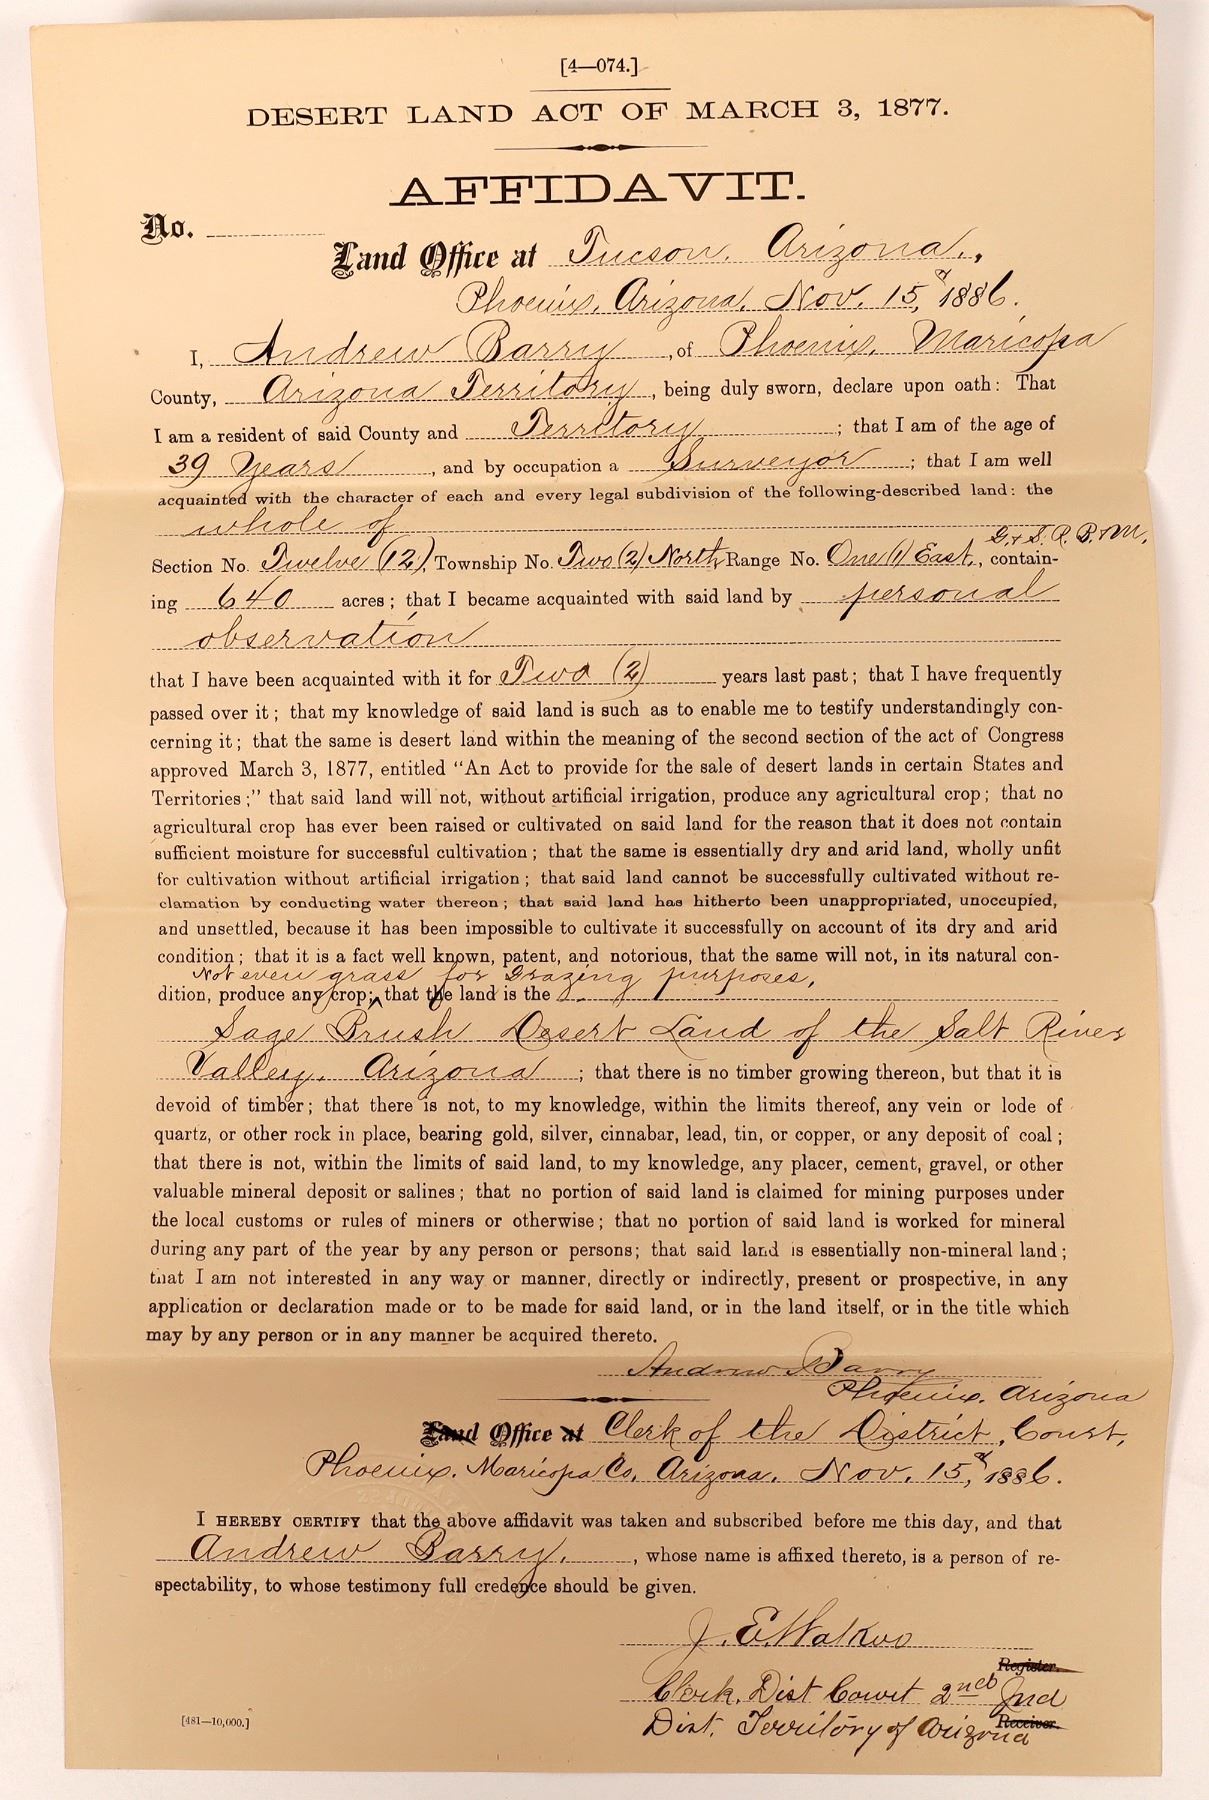 [4—074.]
DESERT LAND ACT OF MARCH 3, 1877.
AFFIDAVIT.
No.
Land Office at Tucson, Arizona.,
Phoenix, Arizona, Nov. 15, 1886.
I, Andrew Barry, of Phoenix, Maricopa
County, Arizona Territory, being duly sworn, declare upon oath: That
I am a resident of said County and Territory; that I am of the age of
39 Years, and by occupation a Surveyor; that I am well
acquainted with the character of each and every legal subdivision of the following-described land: the
whole of
G. & S. R. B. & M.
Section No. Twelve (12), Township No. Two (2) North, Range No. One (1) East, contain-
ing 640 acres; that I became acquainted with said land by personal
observation
that I have been acquainted with it for Two (2) years last past; that I have frequently
passed over it; that my knowledge of said land is such as to enable me to testify understandingly con-
cerning it; that the same is desert land within the meaning of the second section of the act of Congress
approved March 3, 1877, entitled "An Act to provide for the sale of desert lands in certain States and
Territories;" that said land will not, without artificial irrigation, produce any agricultural crop; that no
agricultural crop has ever been raised or cultivated on said land for the reason that it does not contain
sufficient moisture for successful cultivation; that the same is essentially dry and arid land, wholly unfit
for cultivation without artificial irrigation; that said land cannot be successfully cultivated without re-
clamation by conducting water thereon; that said land has hitherto been unappropriated, unoccupied,
and unsettled, because it has been impossible to cultivate it successfully on account of its dry and arid
condition; that it is a fact well known, patent, and notorious, that the same will not, in its natural con-
Not even grass for Grazing purposes,
dition, produce any crop; that the land is the
Sage Brush Desert Land of the Salt River
Valley, Arizona; that there is no timber growing thereon, but that it is
devoid of timber; that there is not, to my knowledge, within the limits thereof, any vein or lode of
quartz, or other rock in place, bearing gold, silver, cinnabar, lead, tin, or copper, or any deposit of coal;
that there is not, within the limits of said land, to my knowledge, any placer, cement, gravel, or other
valuable mineral deposit or salines; that no portion of said land is claimed for mining purposes under
the local customs or rules of miners or otherwise; that no portion of said land is worked for mineral
during any part of the year by any person or persons; that said land is essentially non-mineral land;
that I am not interested in any way or manner, directly or indirectly, present or prospective, in any
application or declaration made or to be made for said land, or in the land itself, or in the title which
may by any person or in any manner be acquired thereto.
Andrew Barry
Phoenix, Arizona
Land Office at Clerk of the District, Court,
Phoenix, Maricopa Co, Arizona, Nov. 15, 1886.
I HEREBY CERTIFY that the above affidavit was taken and subscribed before me this day, and that
Andrew Barry, whose name is affixed thereto, is a person of re-
spectability, to whose testimony full credence should be given.
J. E. Walker
Register.
Clerk, Dist Court 2nd Jud
Dist. Territory of Arizona
Receiver.
[481—10,000.]